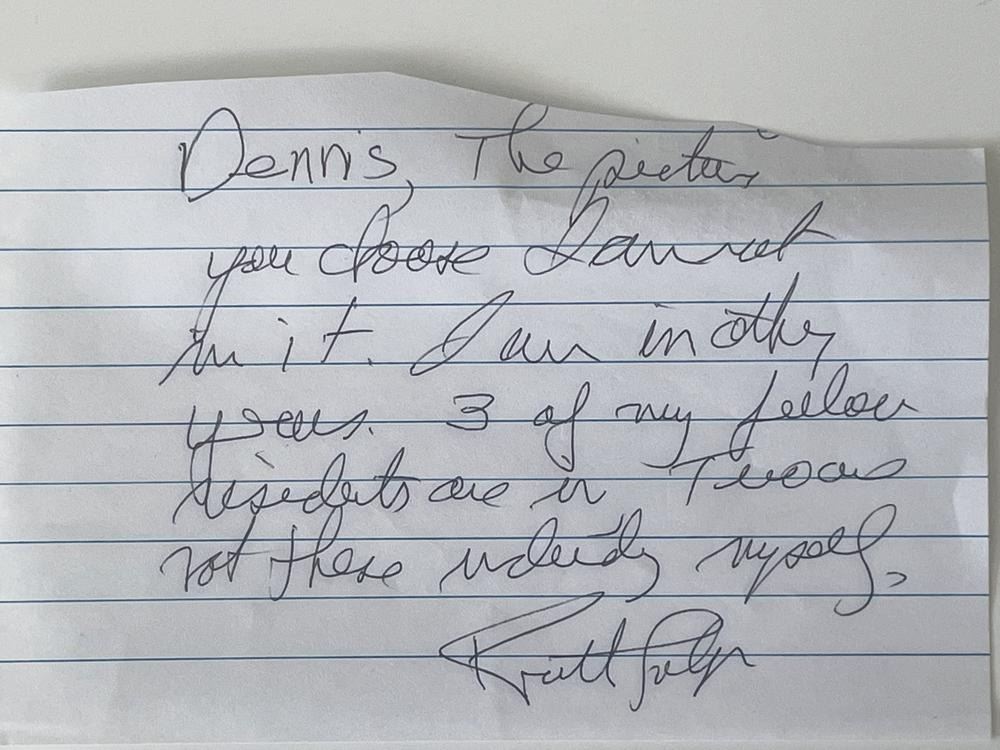 Dennis, The picture
you choose I am not
in it. I am in other
years. 3 of my fellow
residents are in
not there including myself,